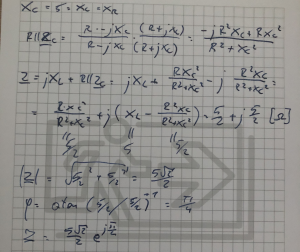 X_C = 5 = X_L = X_R
R||Z_C = \frac{R · -jX_C}{R - jX_C} · \frac{(R + jX_C)}{(R + jX_C)} = \frac{-jR²X_C + RX_C²}{R² + X_C²}
Z = jX_L + R||Z_C = jX_L + \frac{RX_C²}{R² + X_C²} - j \frac{R²X_C}{R² + X_C²} =
= \frac{RX_C²}{R² + X_C²} + j(X_L - \frac{R²X_C}{R² + X_C²}) = \frac{5}{2} + j\frac{5}{2} [Ω]
" " "
5/2 5 5/2
|Z| = \sqrt{\frac{5}{2}² + \frac{5}{2}²} = \frac{5\sqrt{2}}{2}
φ = atan (5/2 / 5/2) = \frac{π}{4}
Z = \frac{5\sqrt{2}}{2} e^{j\frac{π}{4}}